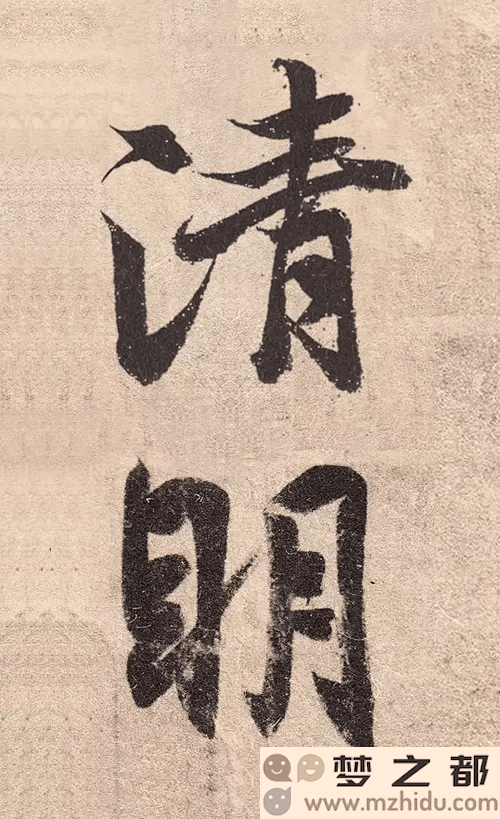 清明
梦之都
www.mzhidu.com